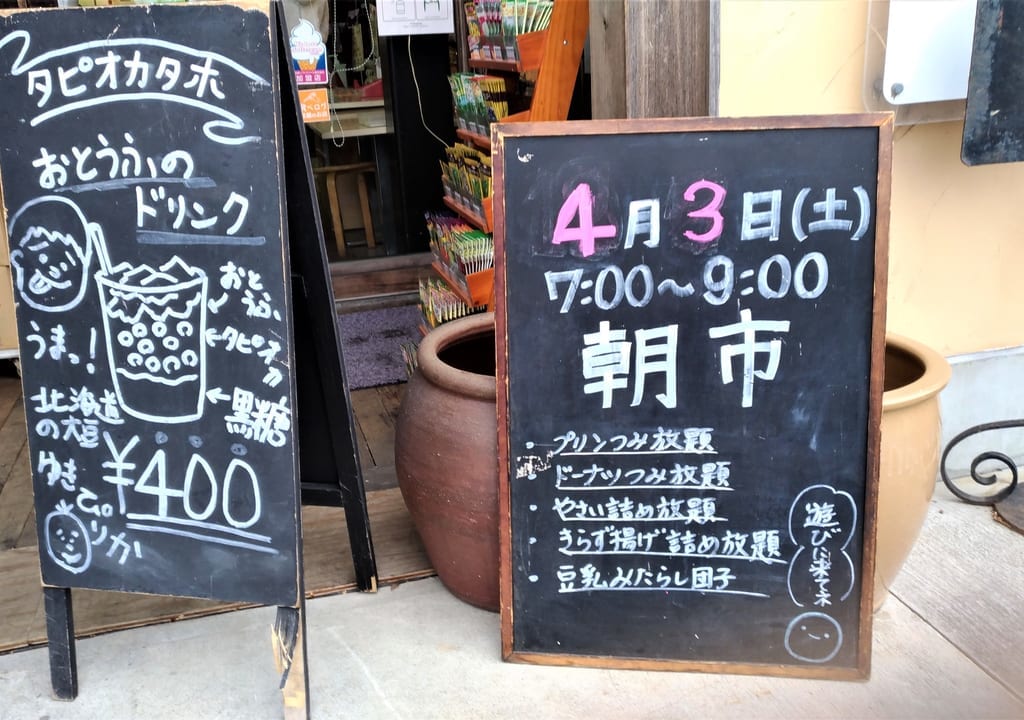 タピオカタホ
おとうふの
ドリンク
おと
うふ
←タピオ
カ
←黒糖
うまっ!
北海道
の大豆
ゆき
ぴりか
¥400
加盟店
4月3日(土)
7:00~9:00
朝市
・プリンつみ放題
・ドーナツつみ放題
・やさい詰め放題
・きらず揚げ詰め放題
・豆乳みたらし団子
遊びに来てネ